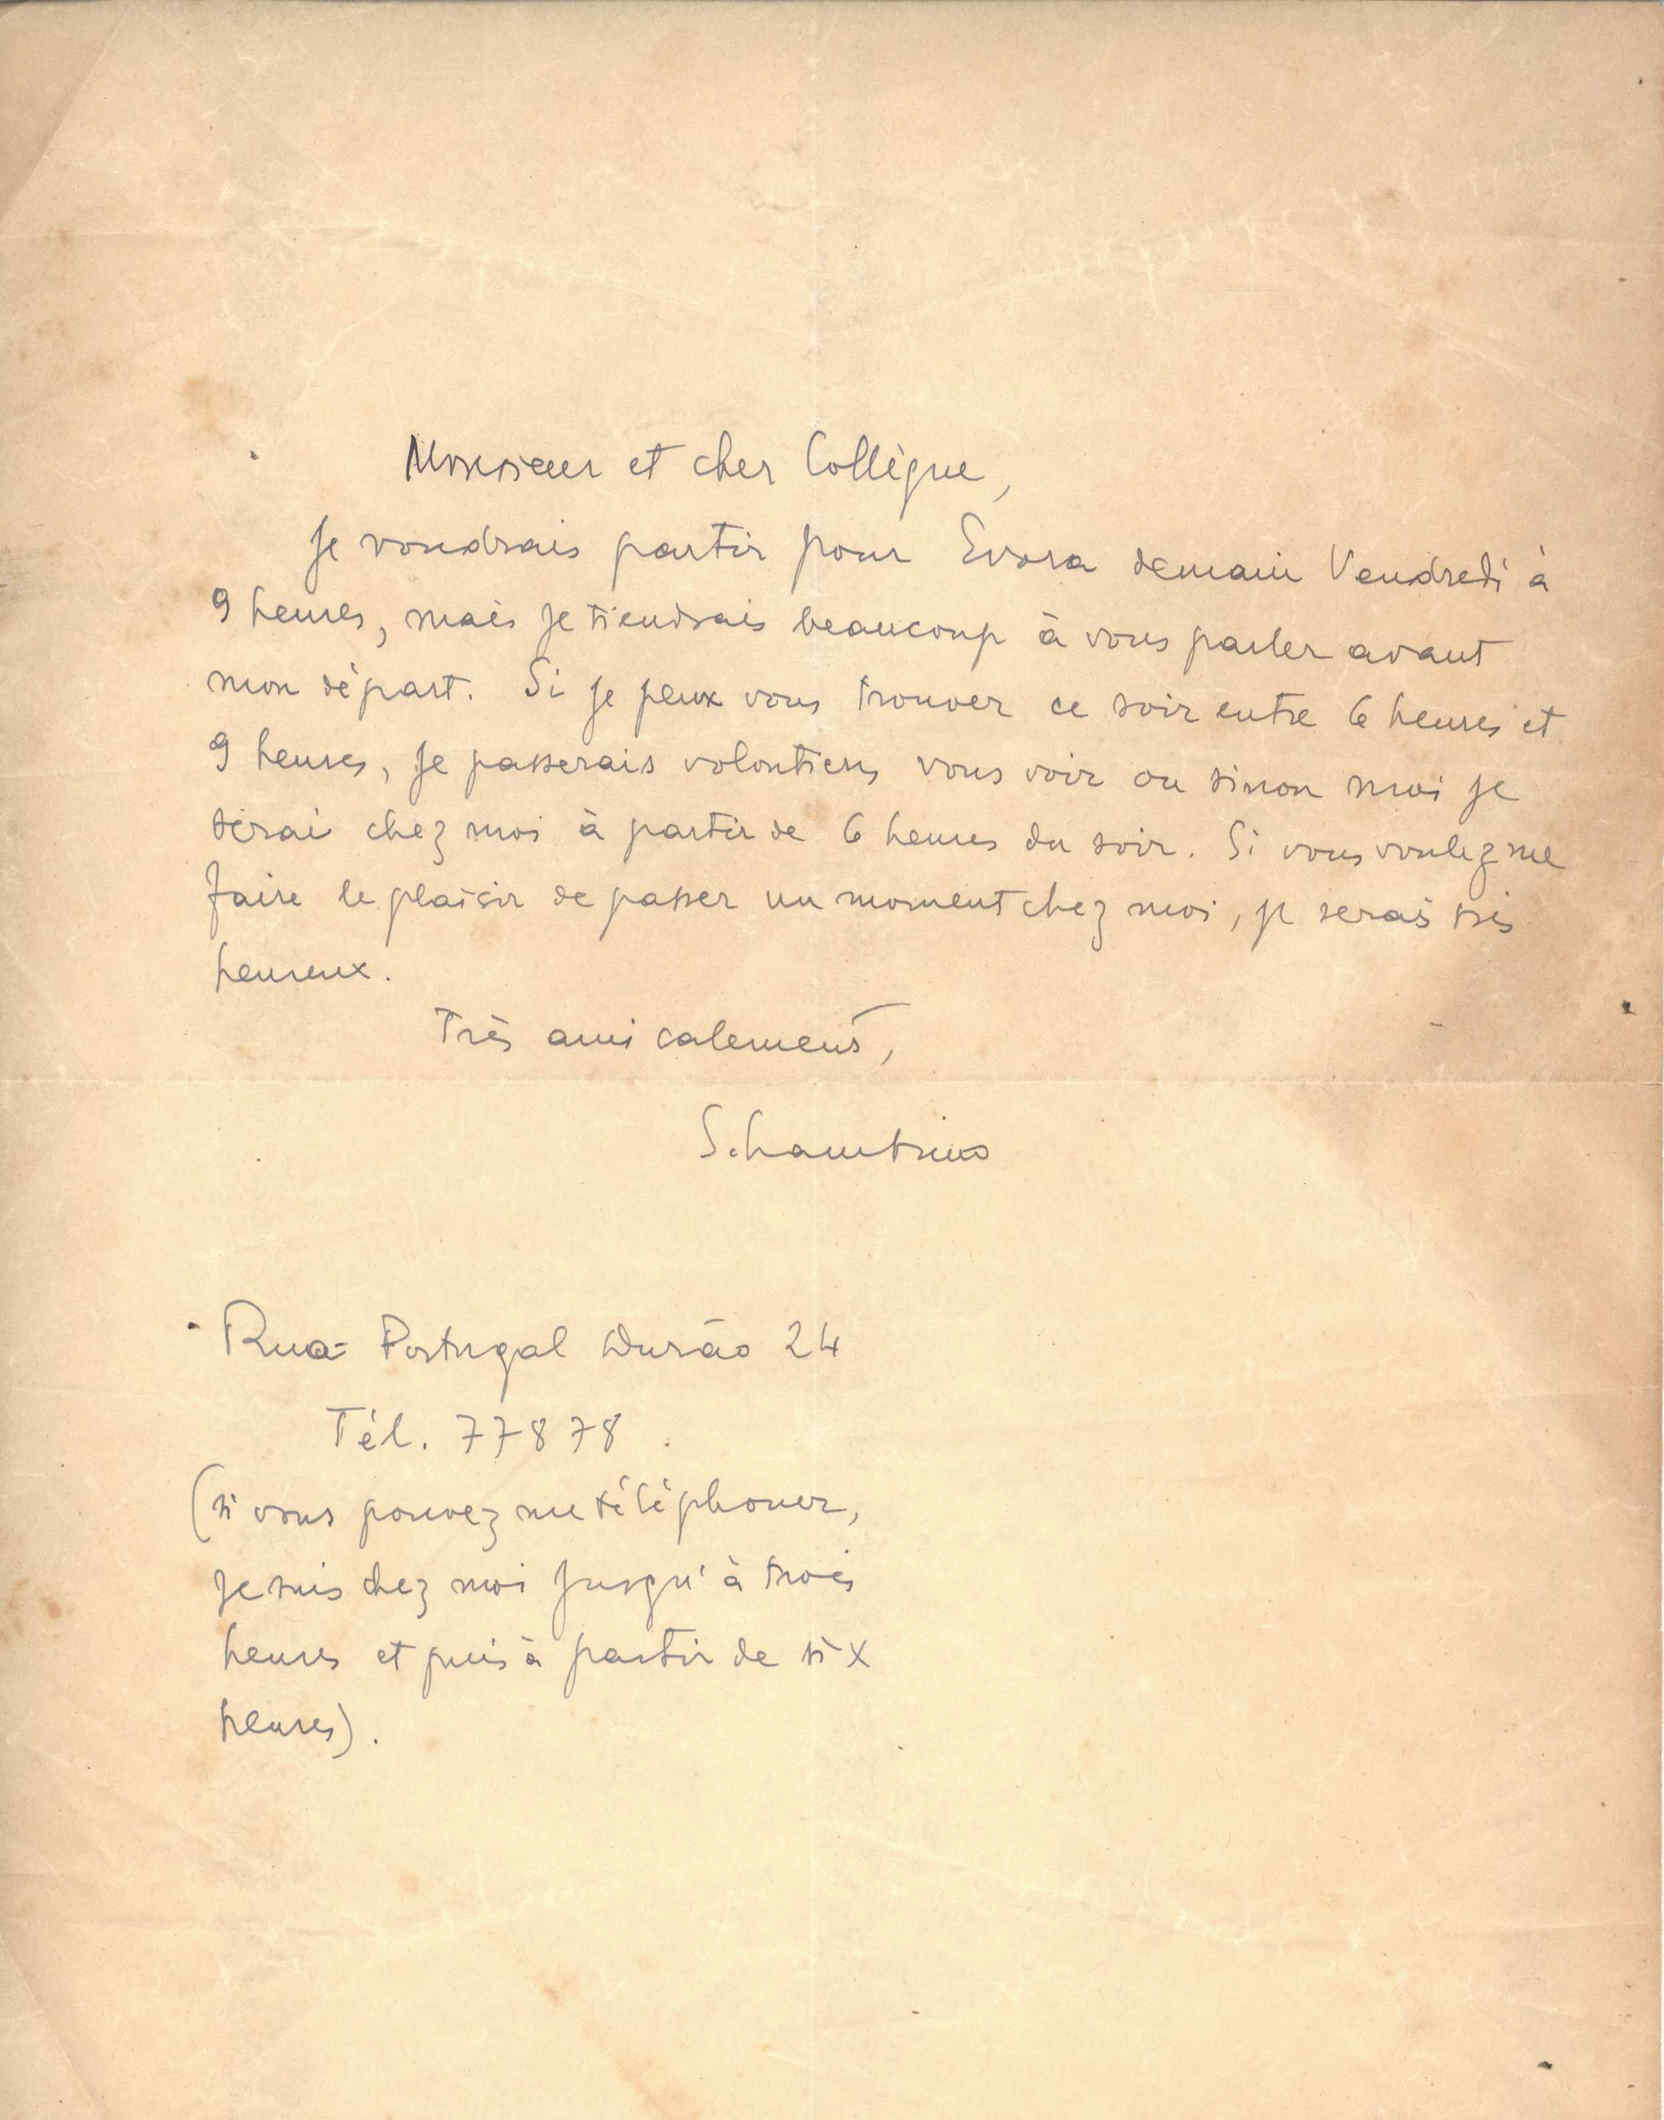 Monsieur et cher Collègue,
Je voudrais partir pour Evora demain Vendredi à
9 heures, mais je tiendrais beaucoup à vous parler avant
mon départ. Si je peux vous trouver ce soir entre 6 heures et
9 heures, je passerais volontiers vous voir ou sinon moi je
serai chez moi à partir de 6 heures du soir. Si vous voulez me
faire le plaisir de passer un moment chez moi, je serais très
heureux.
Très amicalement,
Rua Portugal Durão 24
Tél. 77878
(si vous pouvez me téléphoner,
je suis chez moi jusqu'à trois
heures et puis à partir de six
heures).